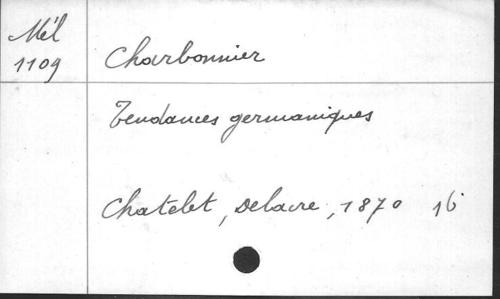 Mél
1109
Charbonnier
Tendances germaniques
Chatelet, Delacre, 1870 16